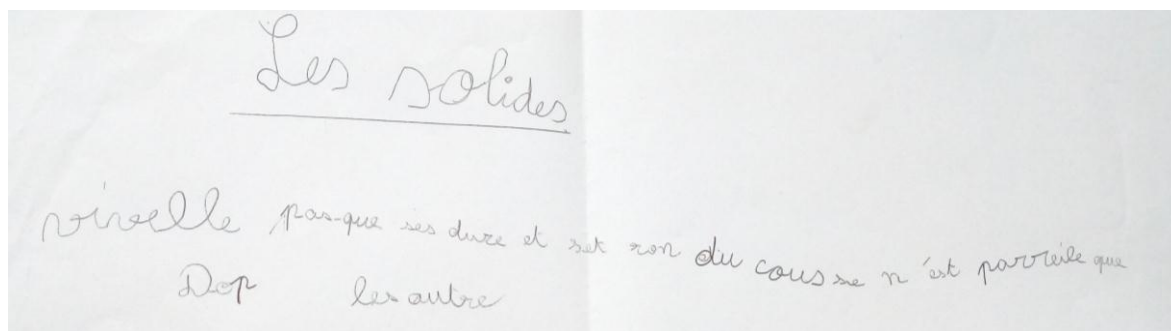 Les solides
vivelle pas-que ses dure et set ron du cous se n'est parreile que
Dop les autre